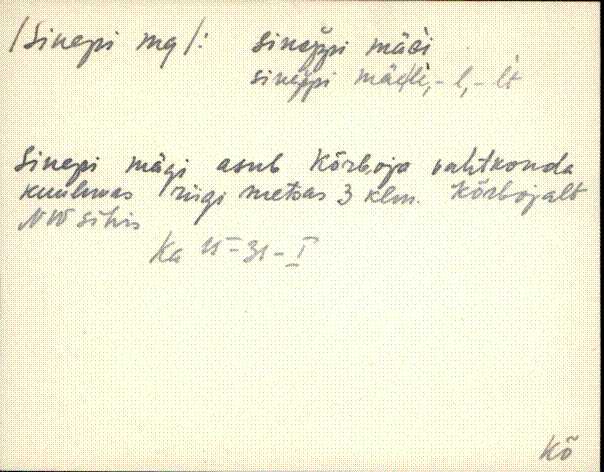 /Sinepi mg/: sineppi mägi
sineppi mäele, -l, -lt
Sinepi mägi asub Kõrboja vahtkonda
kuuluvas riigi metsas 3 klm. Kõrbojalt
NW sihis
Ka II-31-I
Kõ